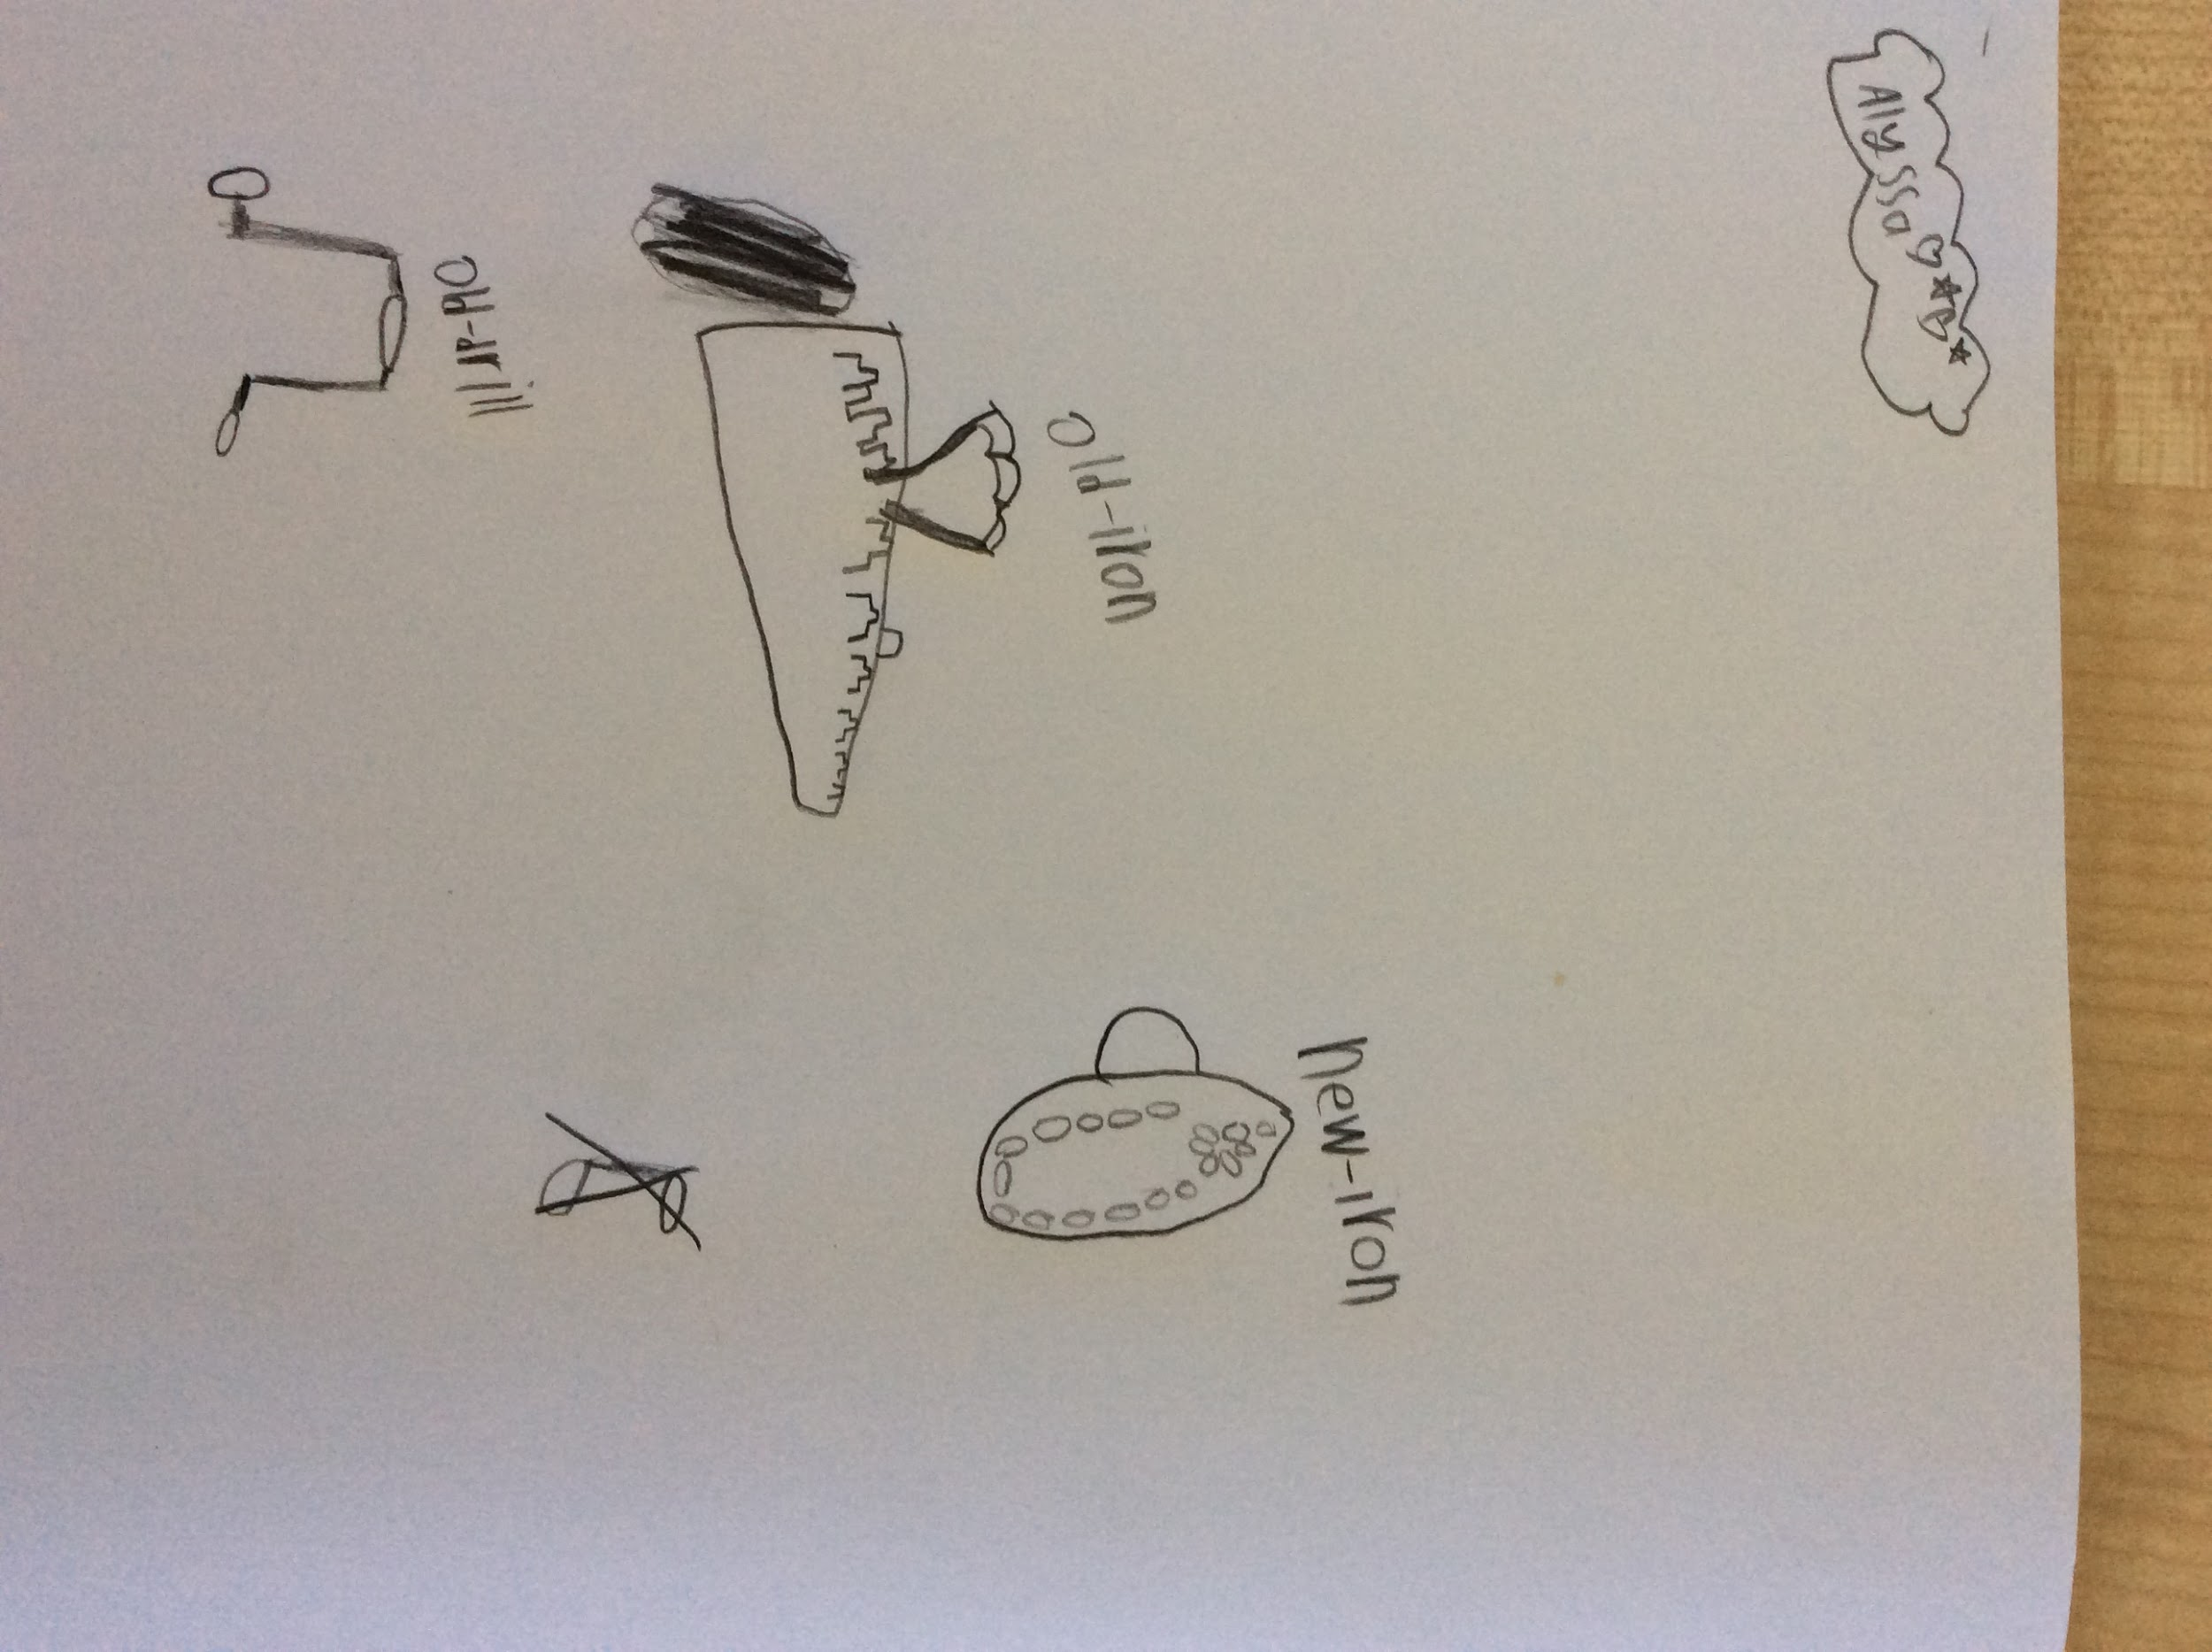 Alyssa
old-iron
new-iron
old-drill